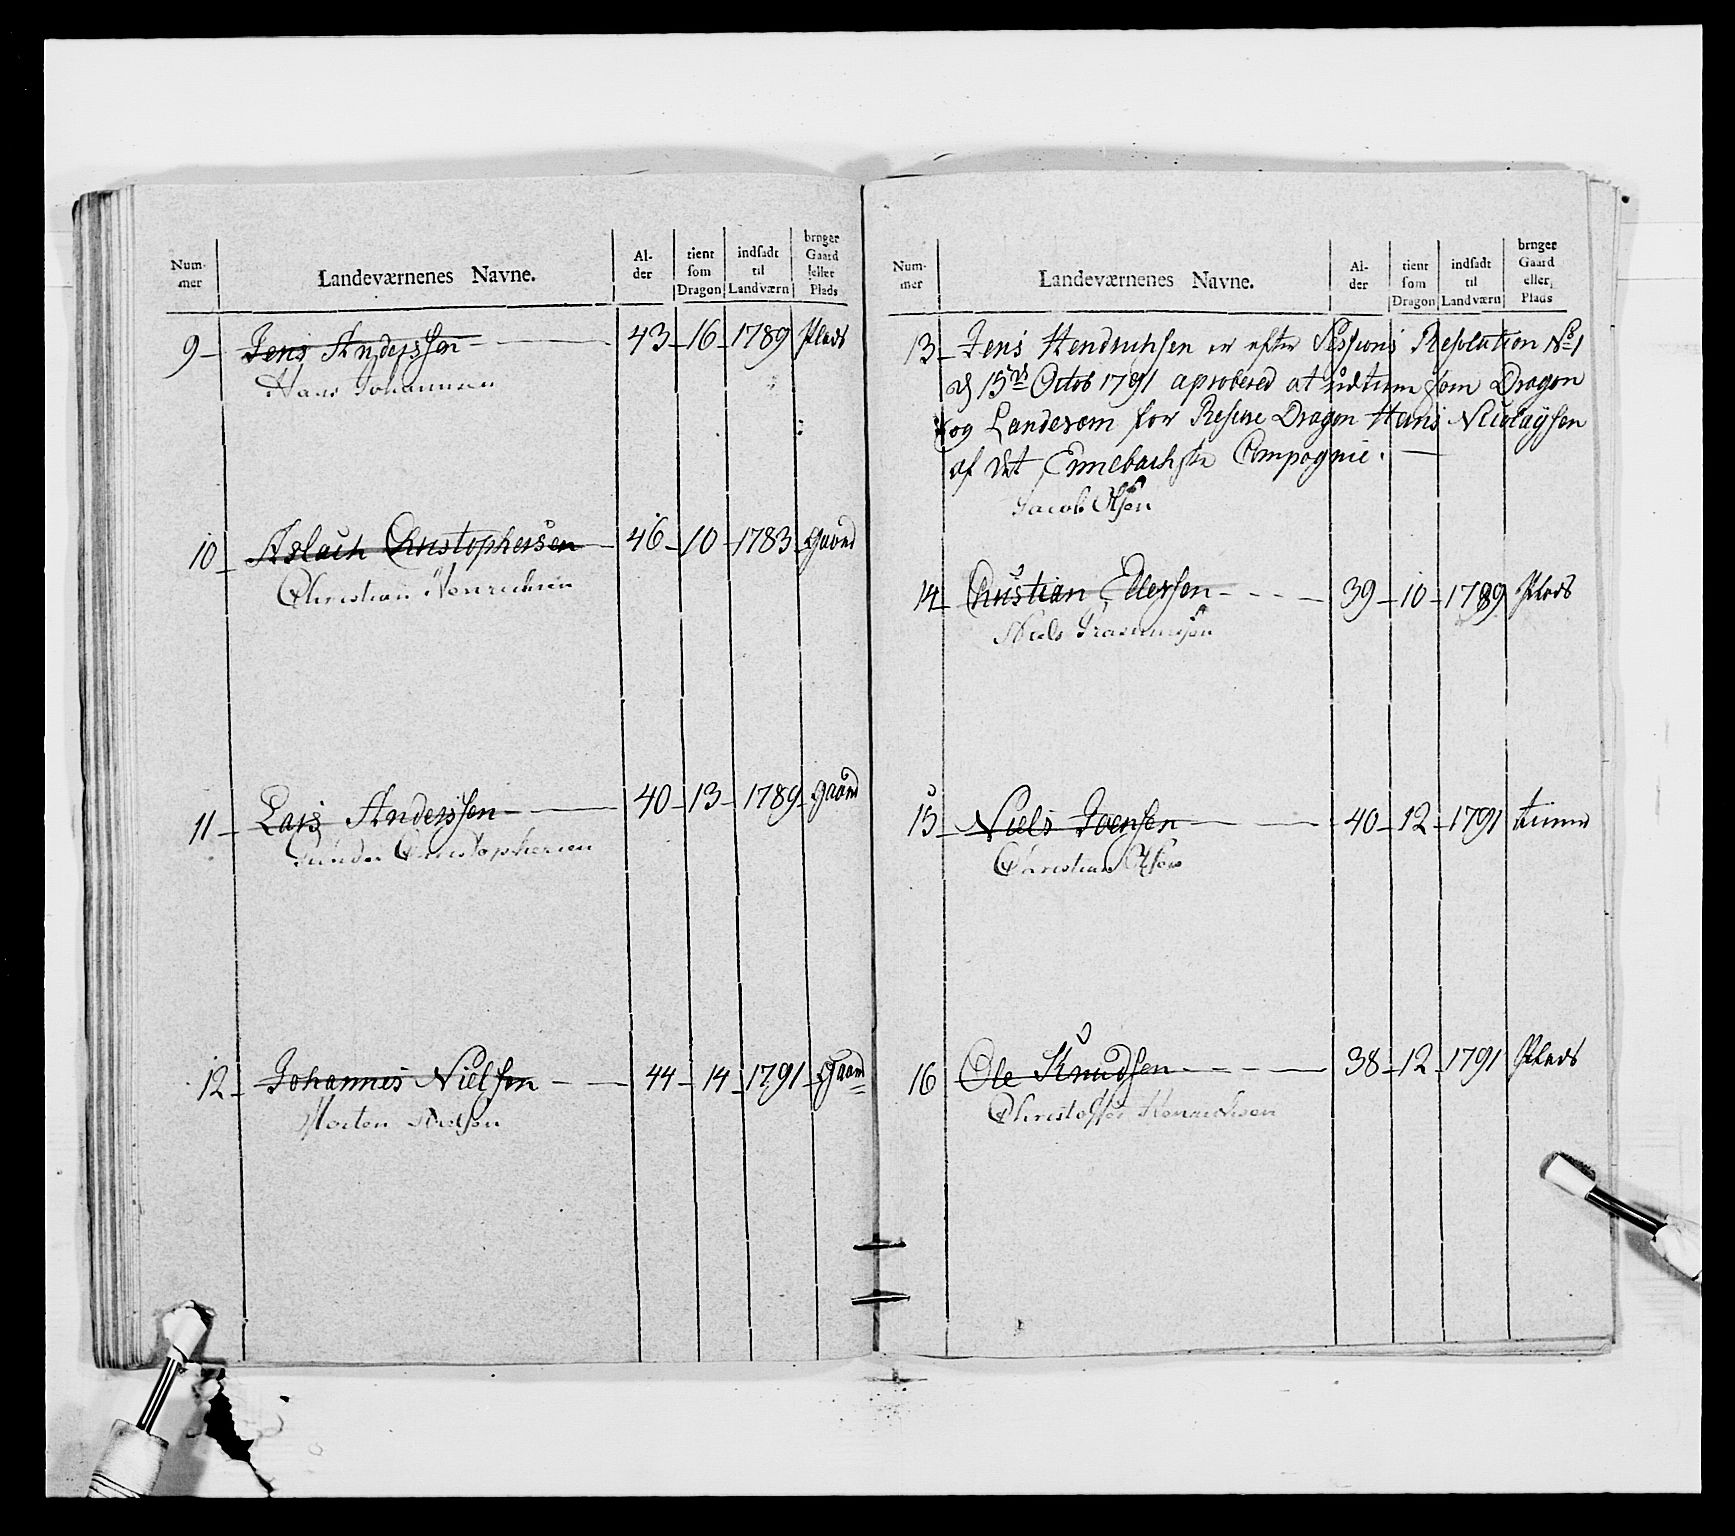 Num- mer | Landeværnenes Navne. | Al- der | tient som Dragon | indsadt til Landværn | bruger Gaard eller Plads
9 – Jens Anderssen – 43 – 16 – 1789 Plads
Hans Johannesen
10 – Aslach Christophersen – 46 – 10 – 1783 – Gaard
Christian Henrichsen
11 – Lars Anderssen – 40 – 13 – 1789 – Gaard
Gunder Christophersen
12 – Johannes Nielsen – 44 – 14 – 1791 – Gaard
Morten Nielsen
Num- mer | Landeværnenes Navne. | Al- der | tient som Dragon | indsadt til Landværn | bruger Gaard eller, Plads
13 – Jens Hendrichsen er efter Sessions Resolution No 1
15de Octob 1791 aprobered at udtiene som Dragon
og Landevern for Reserve Dragon Hans Nicolaysen
af det Ennebachske Compagnie. –
Jacob Olsen
14 – Christian Ellersen – 39 – 10 – 1789 Plads
Niels Rasmusen
15 – Niels Joensen – 40 – 12 – 1791
Christian Olsen
16 Ole Knudsen – 38 – 12 – 1791 Plads
Christoffer Henrichsen